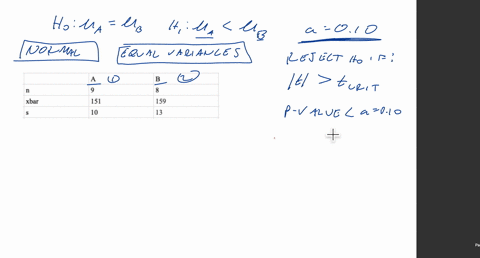 H₀: μA = μB H₁: μA < μB a = 0.10
NORMAL EQUAL VARIANCES
REJECT H₀ IF:
|t| > tCRIT
P-VALUE < a = 0.10
A ① B ②
n 9 8
xbar 151 159
s 10 13